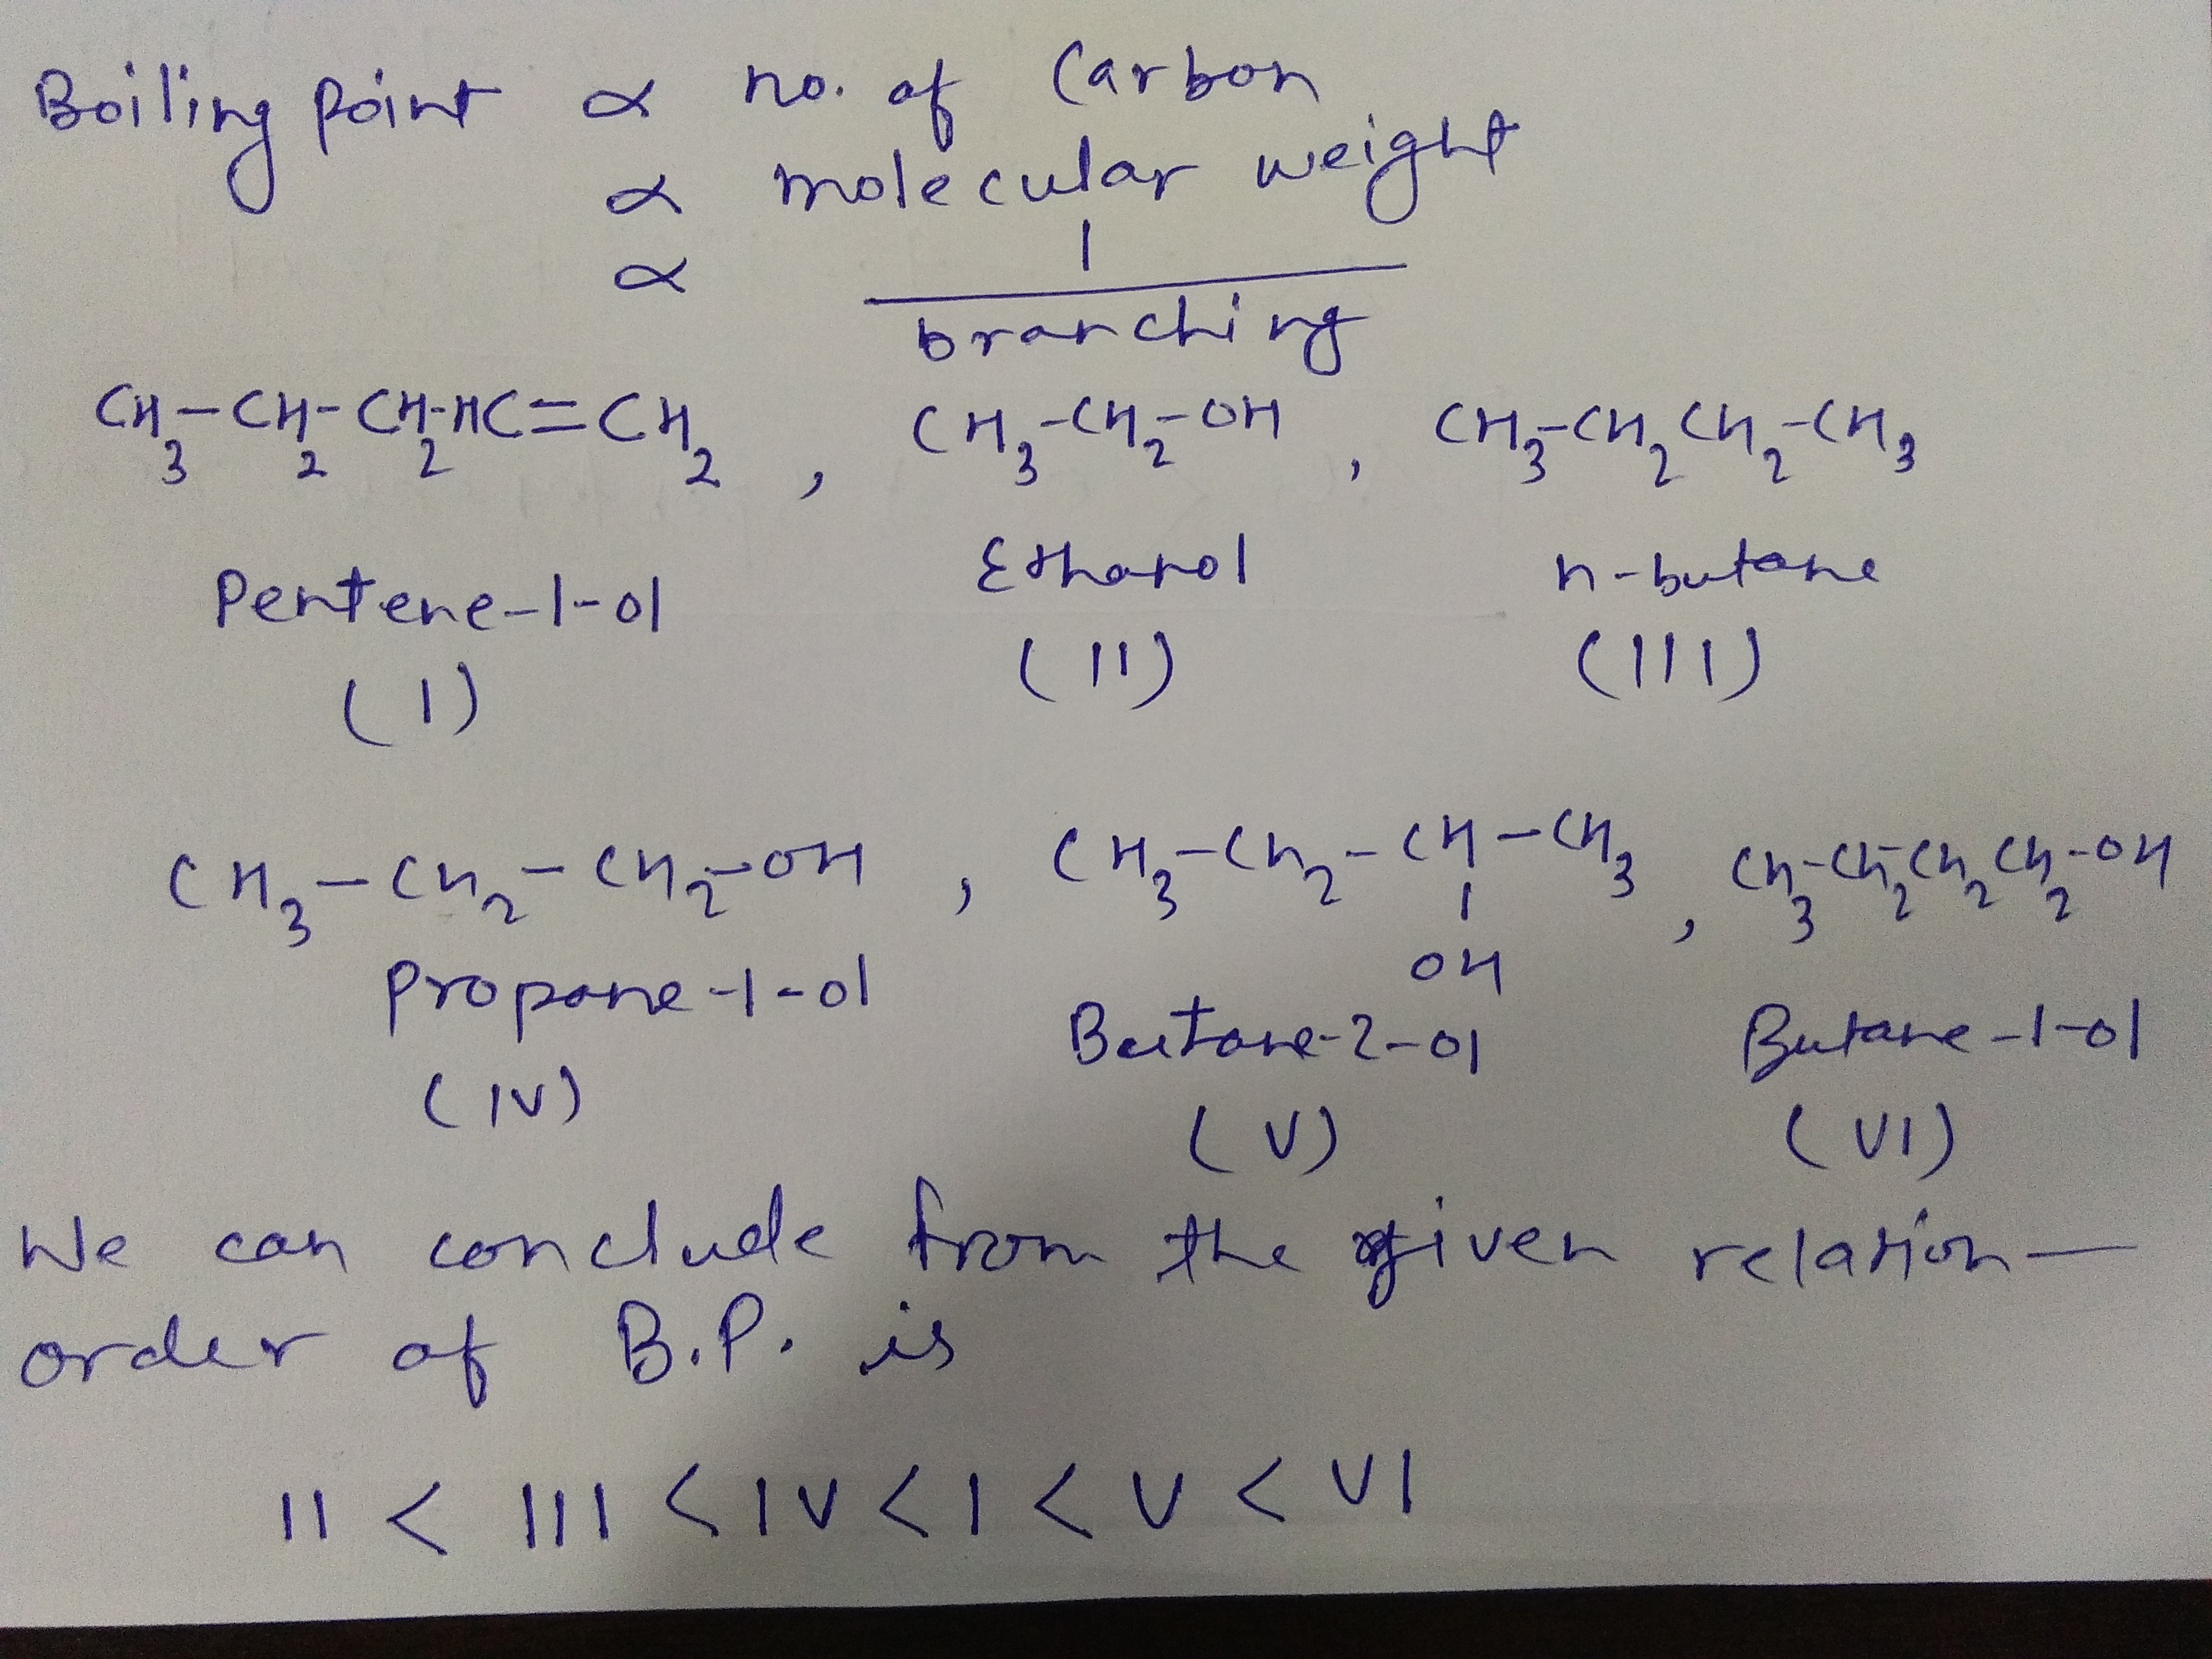 Boiling point ∝ no. of Carbon
∝ molecular weight
∝ 1
branching
CH₃-CH₂-CH₂-HC=CH₂ , CH₃-CH₂-OH , CH₃-CH₂CH₂-CH₃
Pentene-1-ol Ethanol n-butane
(I) (II) (III)
CH₃-CH₂-CH₂-OH , CH₃-CH₂-CH-CH₃ , CH₃-CH₂CH₂CH₂-OH
OH
Propane-1-ol Butane-2-ol Butane-1-ol
(IV) (V) (VI)
We can conclude from the given relation-
order of B.P. is
II < III < IV < I < V < VI